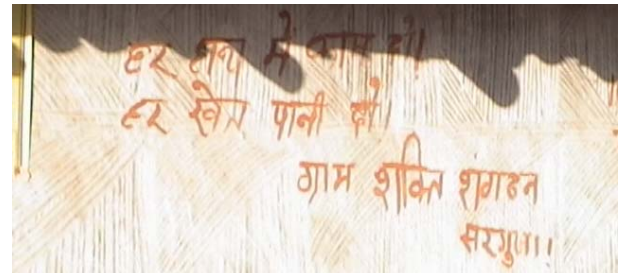 हर हाथ में काम दो।
हर खेत पानी दो।।
ग्राम शक्ति शंगठन
सरगुजा।।